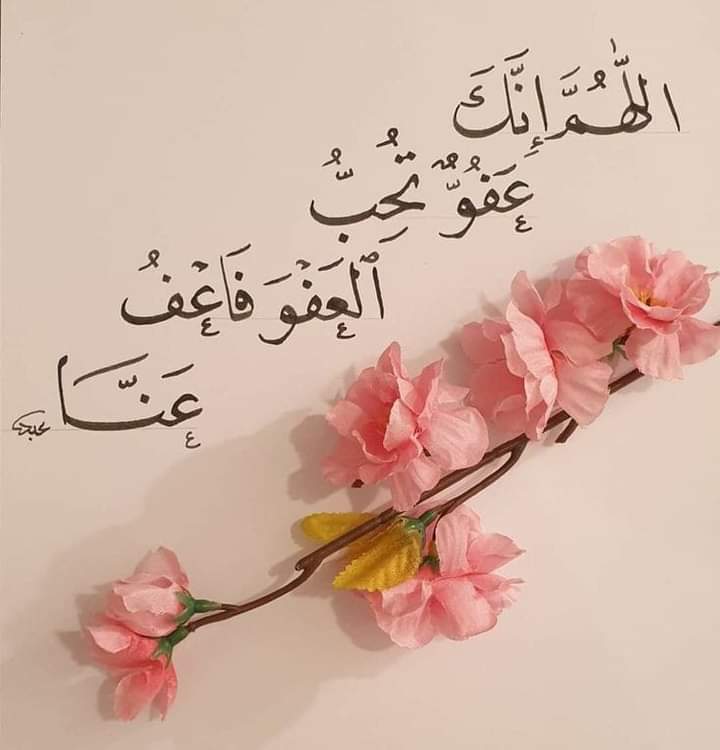 اللَّهُمَّ إِنَّكَ
عَفُوٌّ تُحِبُّ
ٱلْعَفْوَ فَاعْفُ
عَنَّا